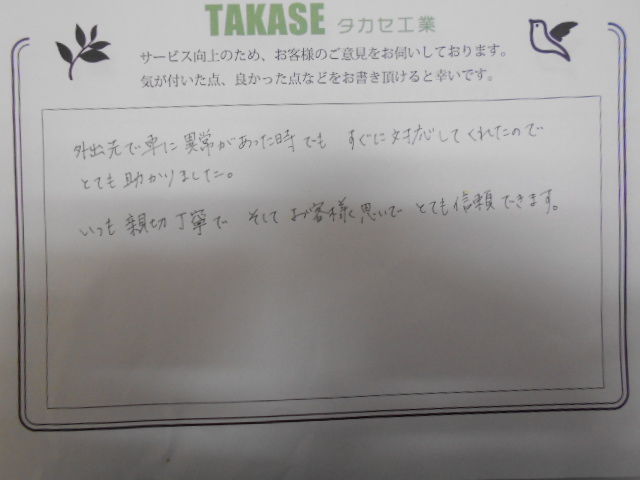 TAKASE タカセ工業
サービス向上のため、お客様のご意見をお伺いしております。
気が付いた点、良かった点などをお書き頂けると幸いです。
外出先で車に異常があった時でも すぐに対応してくれたので
とても助かりました。
いつも親切丁寧で そして お客様思いで とても信頼できます。